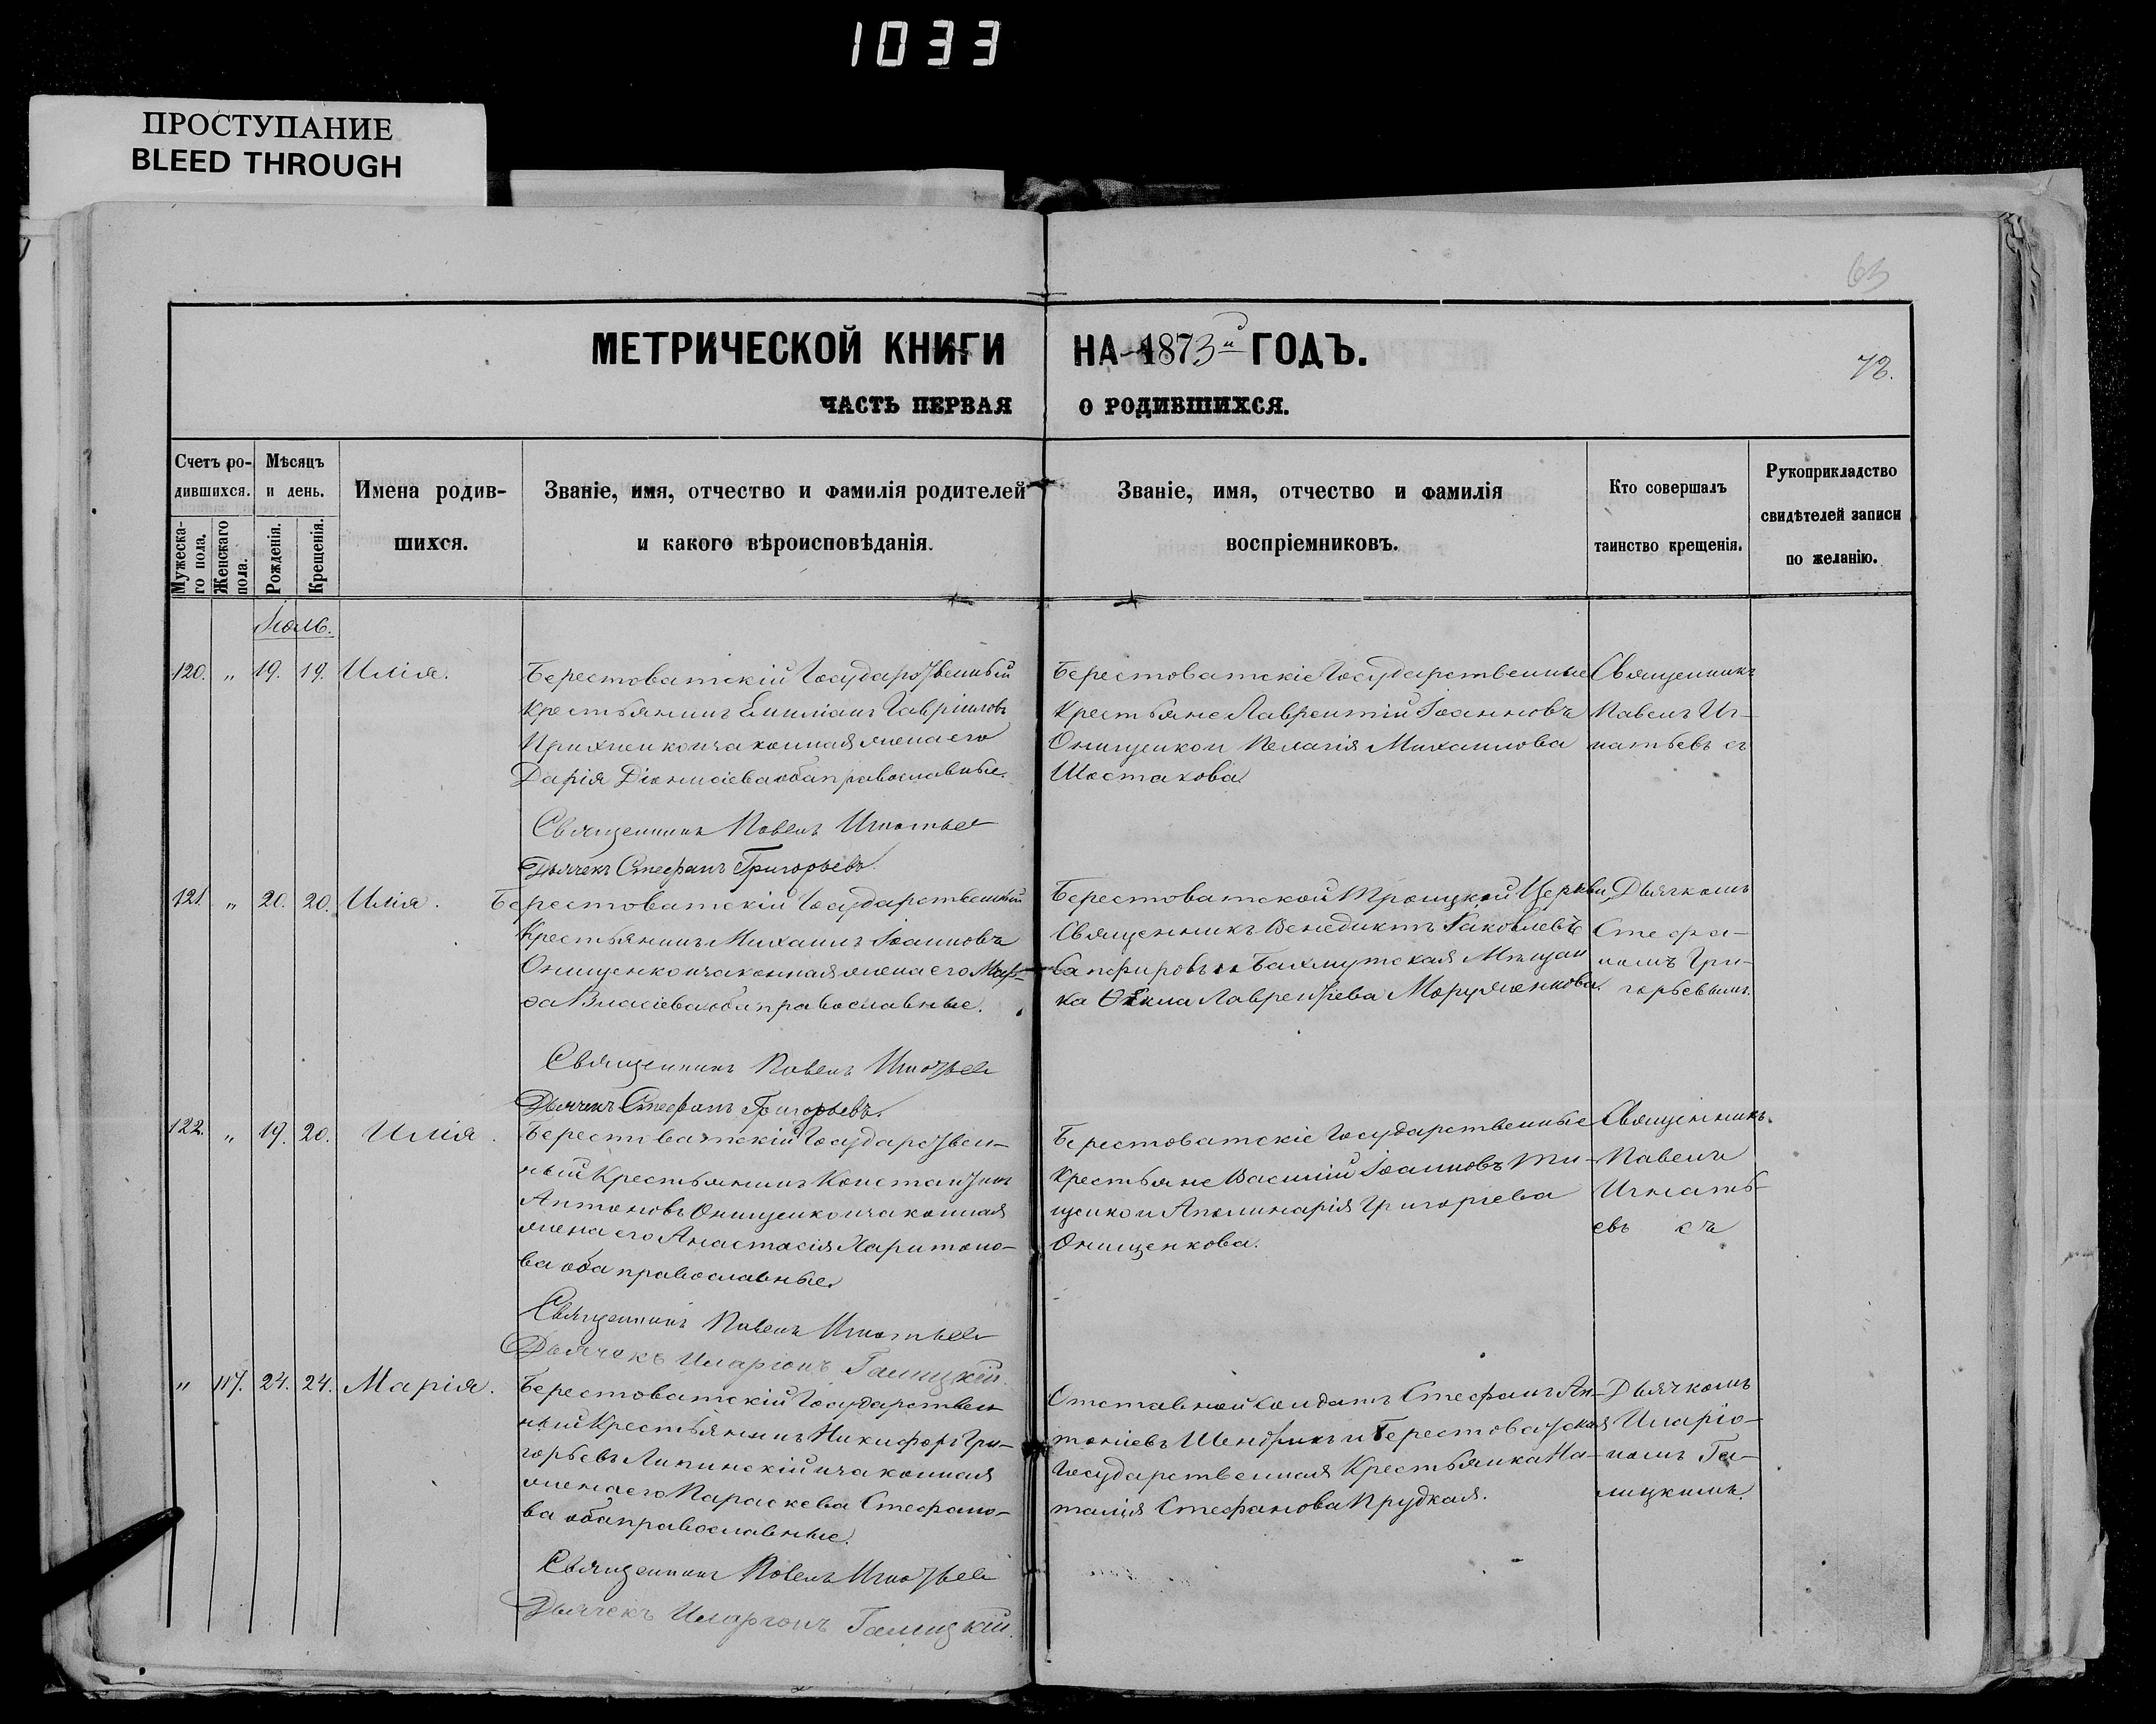 1033
ПРОСТУПАНИЕ
BLEED THROUGH
63
МЕТРИЧЕСКОЙ КНИГИ НА 1873й ГОДЪ.
72.
ЧАСТЬ ПЕРВАЯ О РОДИВШИХСЯ.
Счетъ ро-
дившихся.
Мужеска-
го пола.
Женскаго
пола.
Мѣсяцъ
и день.
Рожденія.
Крещенія.
Имена родив-
шихся.
Званіе, имя, отчество и фамилія родителей
и какого вѣроисповѣданія.
Званіе, имя, отчество и фамилія
воспріемниковъ.
Кто совершалъ
таинство крещенія.
Рукоприкладство
свидѣтелей записи
по желанію.
Іюль.
120. " 19. 19. Илія.
Берестоватскій Государственный
Крестьянинъ Емиліанъ Гавріиловъ
законная жена его
Дарія Діонисіева оба православные.
Священникъ Павелъ Игнатьев
Дьячекъ Стефанъ Григорьевъ.
Берестоватскіе Государственные
Крестьяне Лаврентій Іоанновъ
Онищенко и Пелагія Михаилова
Шостакова.
Священникъ
Павелъ Иг-
натьевъ съ
121. " 20. 20. Илія.
Берестоватскій Государственный
Крестьянинъ Михаилъ Іоанновъ
Онищенко и законная жена его Мар-
ѳа Власіева оба православные.
Священникъ Павелъ Игнатьев
Дьячекъ Стефанъ Григорьевъ.
Берестоватской Троицкой Церкви
Священникъ Венедиктъ Іаковлевъ
Сапфировъ и Бахмутская Мѣщан
ка Ѳекла Лаврентіева
Дьячкомъ
Стефа-
номъ Гри-
горьевымъ.
122. " 19. 20. Илія.
Берестоватскій Государствен-
ный Крестьянинъ Константинъ
Антоновъ Онищенко и законная
жена его Анастасія Харитоно-
ва оба православные.
Священникъ Павелъ Игнатьев
Дьячекъ Иларіонъ Галицкій.
Берестоватскіе Государственные
Крестьяне Василій Іоанновъ Ти-
щенко и Аполинарія Григоріева
Онищенкова.
Священникъ
Павелъ
Игнать-
евъ съ
" 117. 24. 24. Марія.
Берестоватскій Государствен
ный Крестьянинъ Никифоръ Гри-
горьевъ Липинскій и законная
жена его Параскева Стефано-
ва оба православные.
Священникъ Павелъ Игнатьев
Дьячекъ Иларіонъ Галицкій.
Отставной Солдатъ Стефанъ Ан-
тоніевъ и Берестоватская
Государственная Крестьянка На-
талія Стефанова Прудкая.
Дьячкомъ
Иларіо-
номъ Га-
лицкимъ.